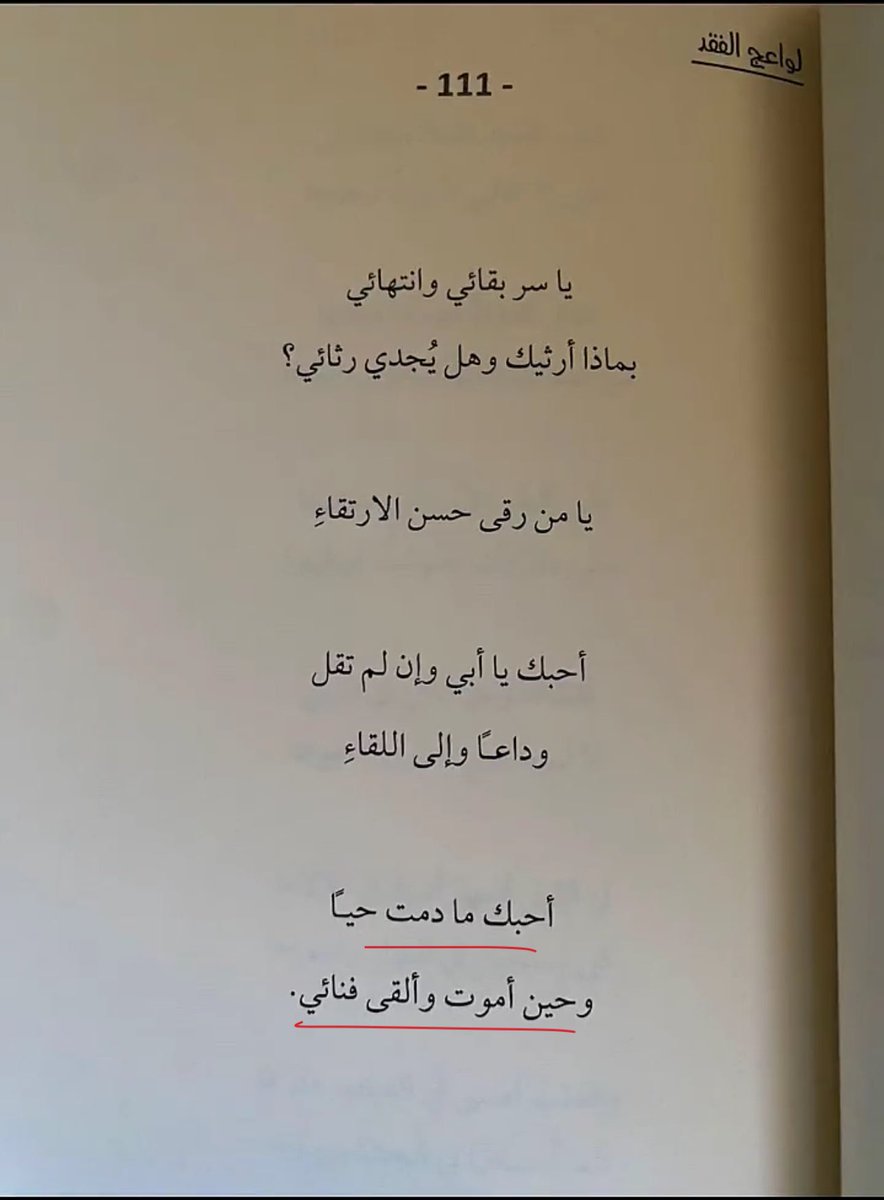 لواعج الفقد
- 111 -
يا سر بقائي وانتهائي
بماذا أرثيك وهل يُجدي رثائي؟
يا من رقى حسن الارتقاءِ
أحبك يا أبي وإن لم تقل
وداعـًا وإلى اللقاءِ
أحبك ما دمت حيـًا
وحين أموت وألقى فنائي.